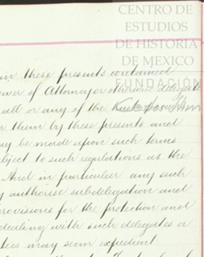 CENTRO DE
ESTUDIOS
DE HISTORIA
DE MEXICO
FUNDACIÓN
these presents contained
Power of Attorney otherwise delegate
all or any of the
them by these presents and
may be made upon such terms
subject to such regulations as the
And in particular any such
authorise subdelegation and
provisions for the protection and
dealing with such delegates or
may seem expedient